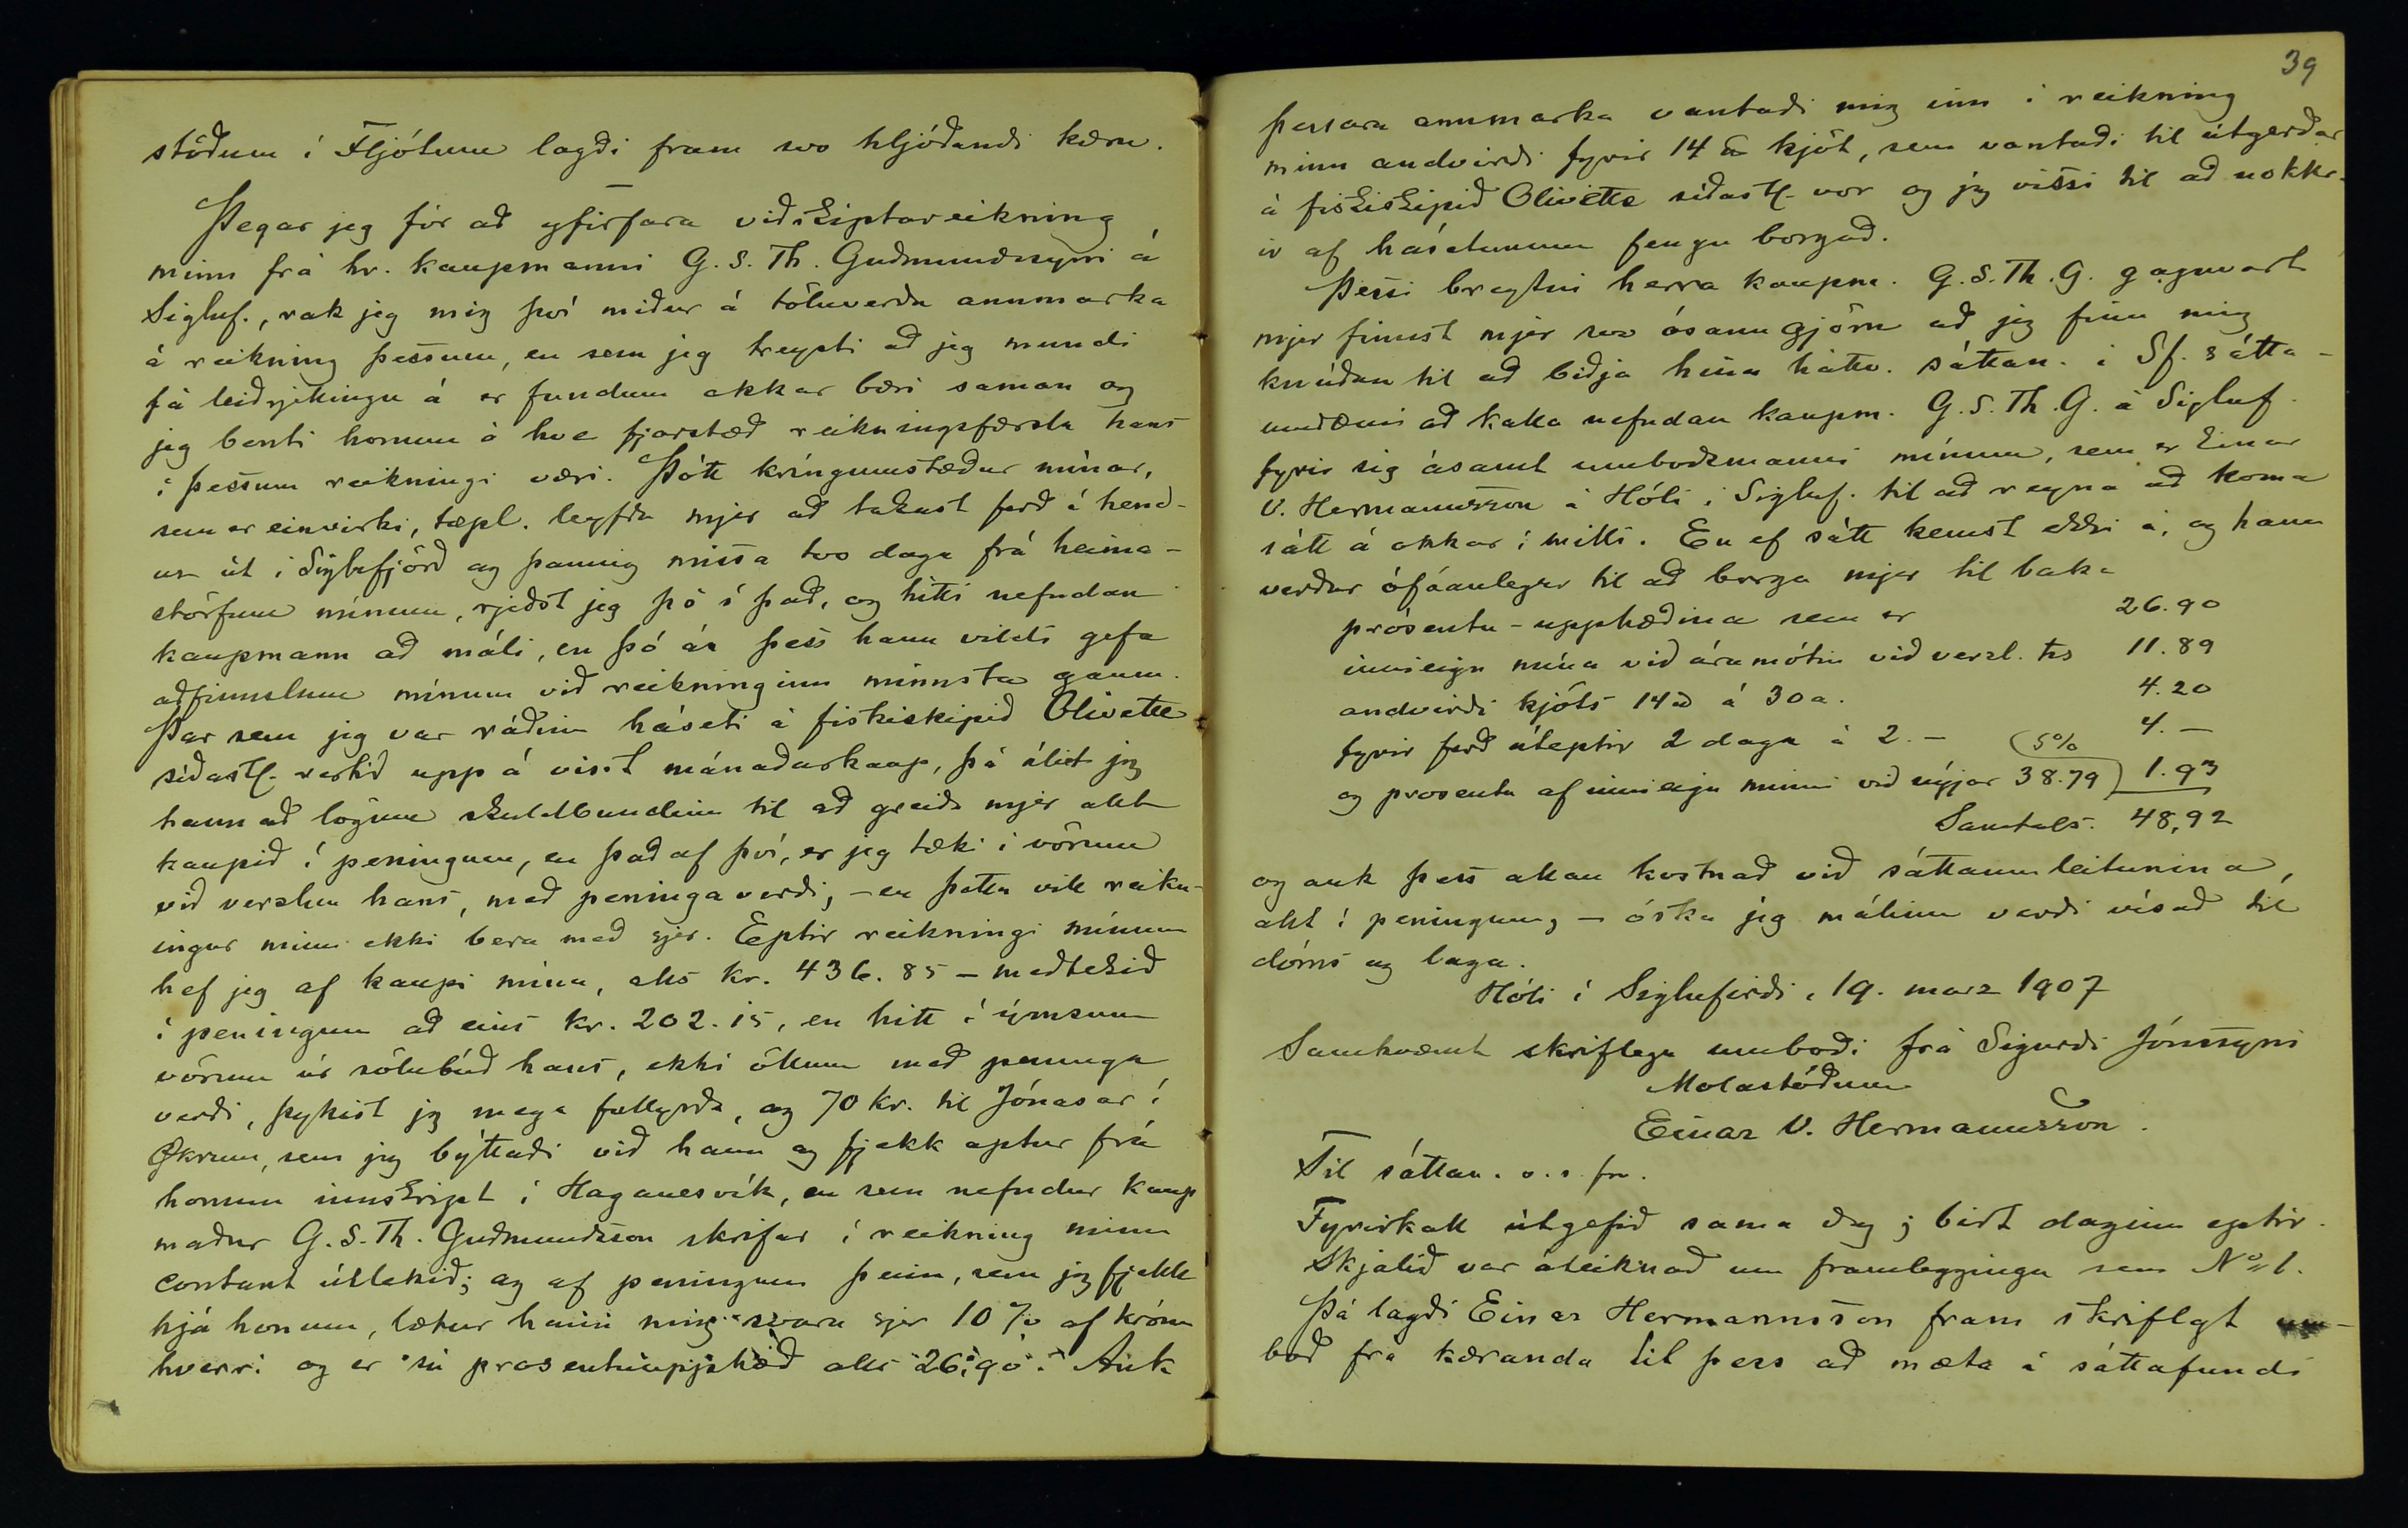 stöðum í Fljótum lagði fram svo hljóðandi kæru.
Þegar jeg fór að yfirfara viðskiptareikning
minn frá hr. kaupmanni G. S. Th. Guðmundssyni á
Sigluf., rak jeg mig því miður á töluverða annmarka
á reikning þessum, en sem jeg treysti að jeg mundi
fá leiðrjettingu á er fundum okkar bæri saman og
jeg benti honum á hve fjarstæð reikningsfærsla hans
í þessum reikningi væri. Þótt kríngumstæður mínar,
sem er einvirki, tæpl. leyfðu mjer að takast ferð á hend-
ur út í Siglufjörð og þannig missa tvo daga frá heima-
störfum mínum, rjeðst jeg þó í það, og hitti nefndan
kaupmann að máli, en þó án þess hann vildi gefa
aðfinnslum mínum við reikninginn minnsta gaum.
Þar sem jeg var ráðinn háseti á fiskiskipið Olivette
síðastl. vertíð upp á visst mánaðarkaup, þá áleit jeg
hann að lögum skuldbundinn til að greiða mjer allt
kaupið í peningum, en það af því, er jeg tæki í vörum
við verslun hans, með peningaverði, - en þetta vill reikn-
ingur minn ekki bera með sjer. Eptir reikningi mínum
hef jeg af kaupi mínu, alls kr. 436.85 - meðtekið
í peningum að eins kr. 202.15, en hitt í ýmsum
vörum úr sölubúð hans, ekki öllum með peninga
verði, þykist jeg mega fullyrða, og 70 kr. til Jónasar í
Økrum, sem jeg býttaði við hann og fjekk aptur frá
honum innskript í Haganesvík, en sem nefndur kaup
maður G. S. Th. Guðmundsson skrifar í reikning minn
contant úttekið; og af peningum þeim, sem jeg fjekk
hjá honum, lætur hann mig svara sjer 10 % af krónu
hverri og er sú prosentuupphæð alls 26.90. Auk
39
þessara annmarka vantaði mig inn í reikning
minn andvirði fyrir 14 ℔ kjöt, sem vantaði til útgerðar
á fiskiskipið Olivette síðastl. vor og jeg vissi til að nokkr-
ir af hásetunum fengu borgað.
Þessi breytni herra kaupm. G. S. Th. G. gagnvart
mjer finnst mjer svo ósanngjörn að jeg finn mig
knúðan til að biðja hina háttv. sáttan. í Sf. sátta-
umdæmi að kalla nefndan kaupm. G. S. Th. G. á Sigluf.
fyrir sig ásamt umboðsmanni mínum, sem er Einar
V. Hermannsson á Hóli í Sigluf. til að reyna að koma
sátt á okkar í milli. En ef sátt kemst ekki á, og hann
verður ófáanlegur til að borga mjer til baka
prósentu-upphæðina sem er 26.90
innieign mína við áramótin við versl. hs 11.89
andvirði kjöts 14 ℔ á 30 a. 4.20
fyrir ferð úteptir 2 daga á 2.- 4.-
og prosentu af innieign minni við nýjar 38.79 (5%) 1.93
Samtals. 48,92
og auk þess allan kostnað við sáttaumleitunina,
allt í peningum, - óska jeg málinu verði vísað til
dóms og laga.
Hóli í Siglufirði, 19. marz 1907
Samkvæmt skriflegu umboði frá Sigurði Jónssyni
Molastöðum
Einar V. Hermannsson.
Til sáttan. o. s. frv.
Fyrirkall útgefið sama dag; birt daginn eptir.
Skjalið var áteiknað um framleggingu sem No 1.
Þá lagði Einar Hermannsson fram skriflegt um-
boð frá kæranda til þess að mæta á sáttafundi